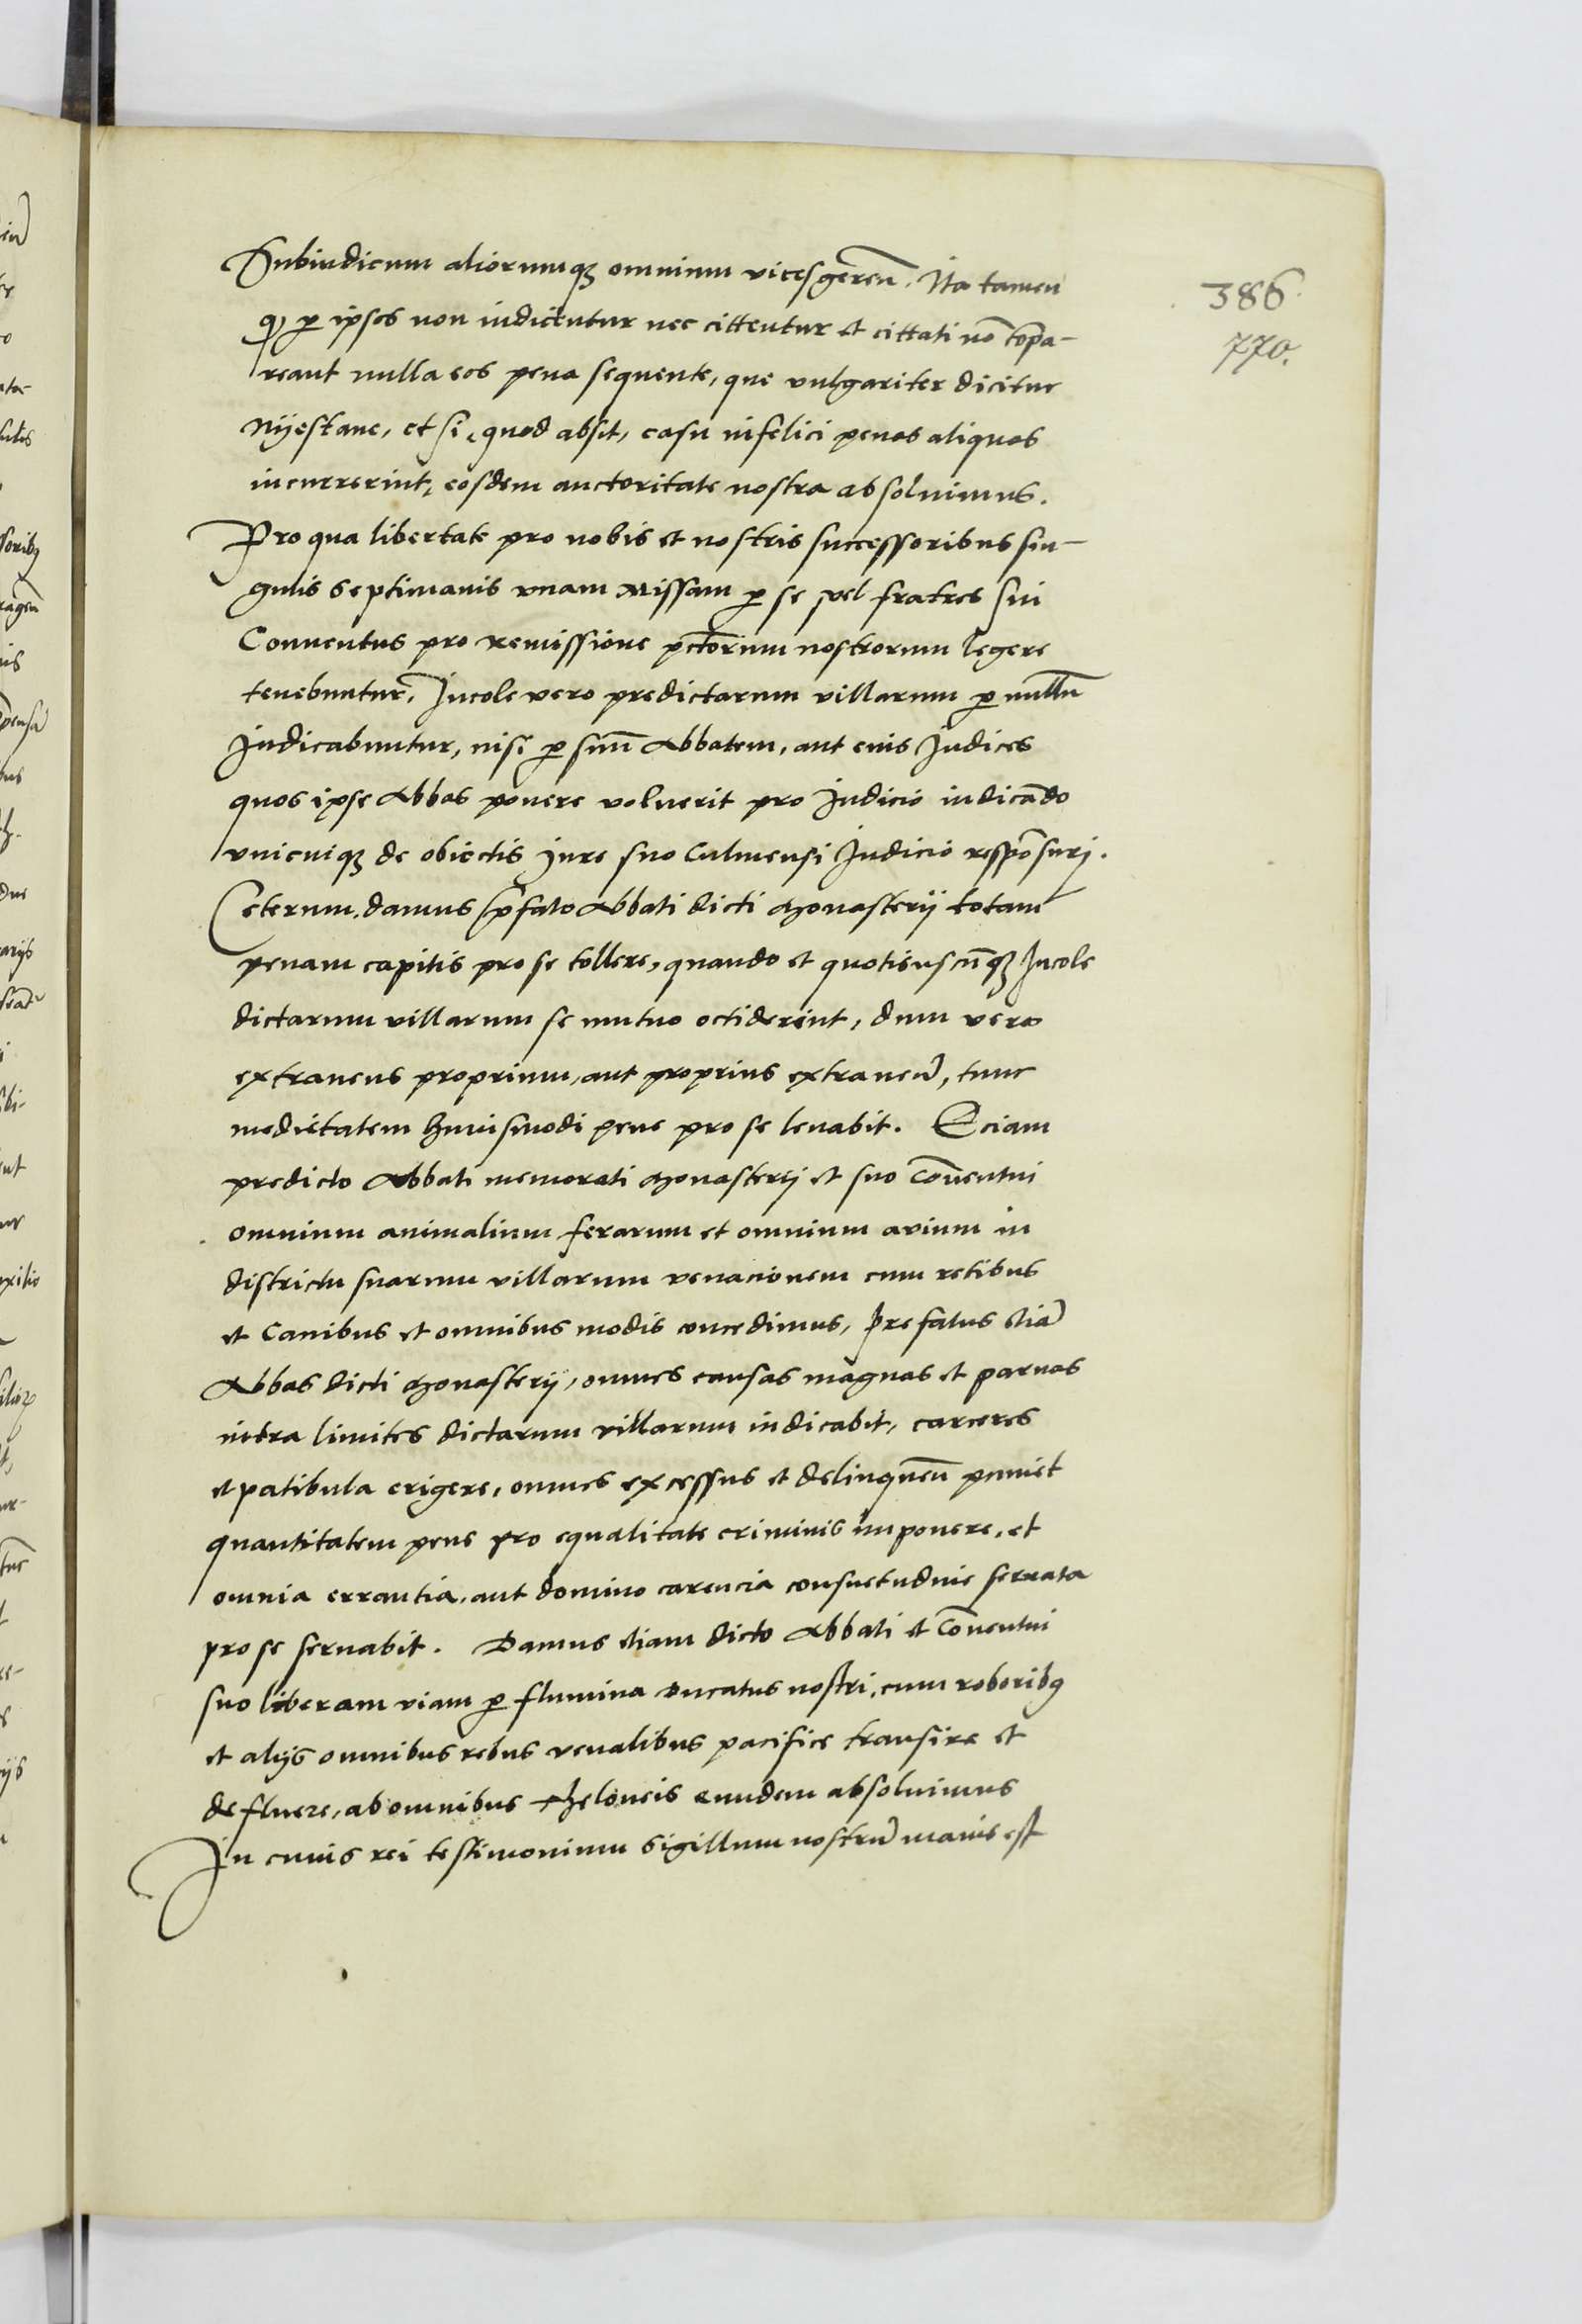 386
770.
Subiudicum aliorumqȝ omnium vicesgereñ. Ita tamen
ꝙ ꝑ ipsos non iudicentur nec cittentur et cittati nō cōpa-
reant nulla eos pena sequente, que vulgariter dicitur
Nyestane, et si, quod absit, casu infelici penas aliquas
incurrerint, eosdem auctoritate nostra absoluimus.
Pro qua libertate pro nobis et nostris successoribus sin-
gulis septimanis vnam Missam ꝑ se vel fratres sui
Conuentus pro remissione pctorum nostrorum legere
tenebuntur. Incole vero predictarum villarum ꝑ nullū
Iudicabuntur, nisi ꝑ suū Abbatem, aut euis Iudices
quos ipse Abbas ponere voluerit pro Iudicio iudicādo
vnicuiqȝ de obiectis Iure suo Culmensi Iudicio respōsurj.
Ceterum damus p̄fato Abbati dicti Monasterij totam
penam capitis pro se tollere, quando et quotiuscūqȝ Incole
dictarum villarum se mutuo occiderint, dum vero
extraneus proprium, aut proprius extraneū, tunc
medietatem huiusmodi pene pro se leuabit. Eciam
predicto Abbati memorati Monasterij et suo Cōuentui
omnium animalium ferarum et omnium avium in
districtu suarum villarum venacionem cum retibus
et Canibus et omnibus modis concedimus, Prefatus etiā
Abbas dicti Monasterij, omnes causas magnas et paruas
intra limites dictarum villarum iudicabit, carceres
et patibula erigere, omnes excessus et delinqueñ puniet
quantitatem pene pro equalitate criminis imponere, et
omnia errantia, aut domino carencia consuetudine seruata
pro se seruabit. Damus etiam dicto Abbati et Cōuentui
suo liberam viam ꝑ flumina Ducatus nostri, cum roboribꝯ
et alijs omnibus rebus venalibus pacifice transire et
defluere, ab omnibus theloneis eundem absoluimus
In cuius rei testimonium Sigillum nostrū maius est